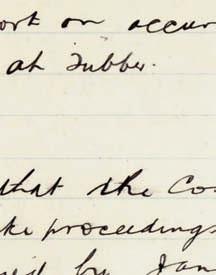 ort on occur
at Tubber.
that the Co
ke proceedings
ed by Jam